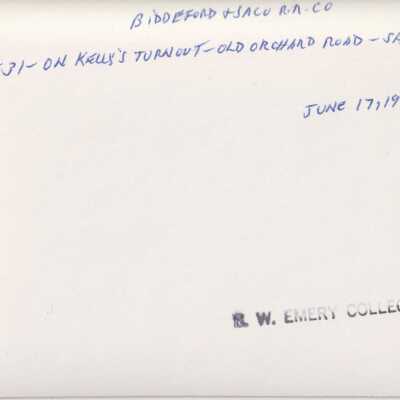 BIDDEFORD & SACO R.R. CO
31 - ON KELLY'S TURNOUT - OLD ORCHARD ROAD - SA
JUNE 17, 19
R. W. EMERY COLLEC